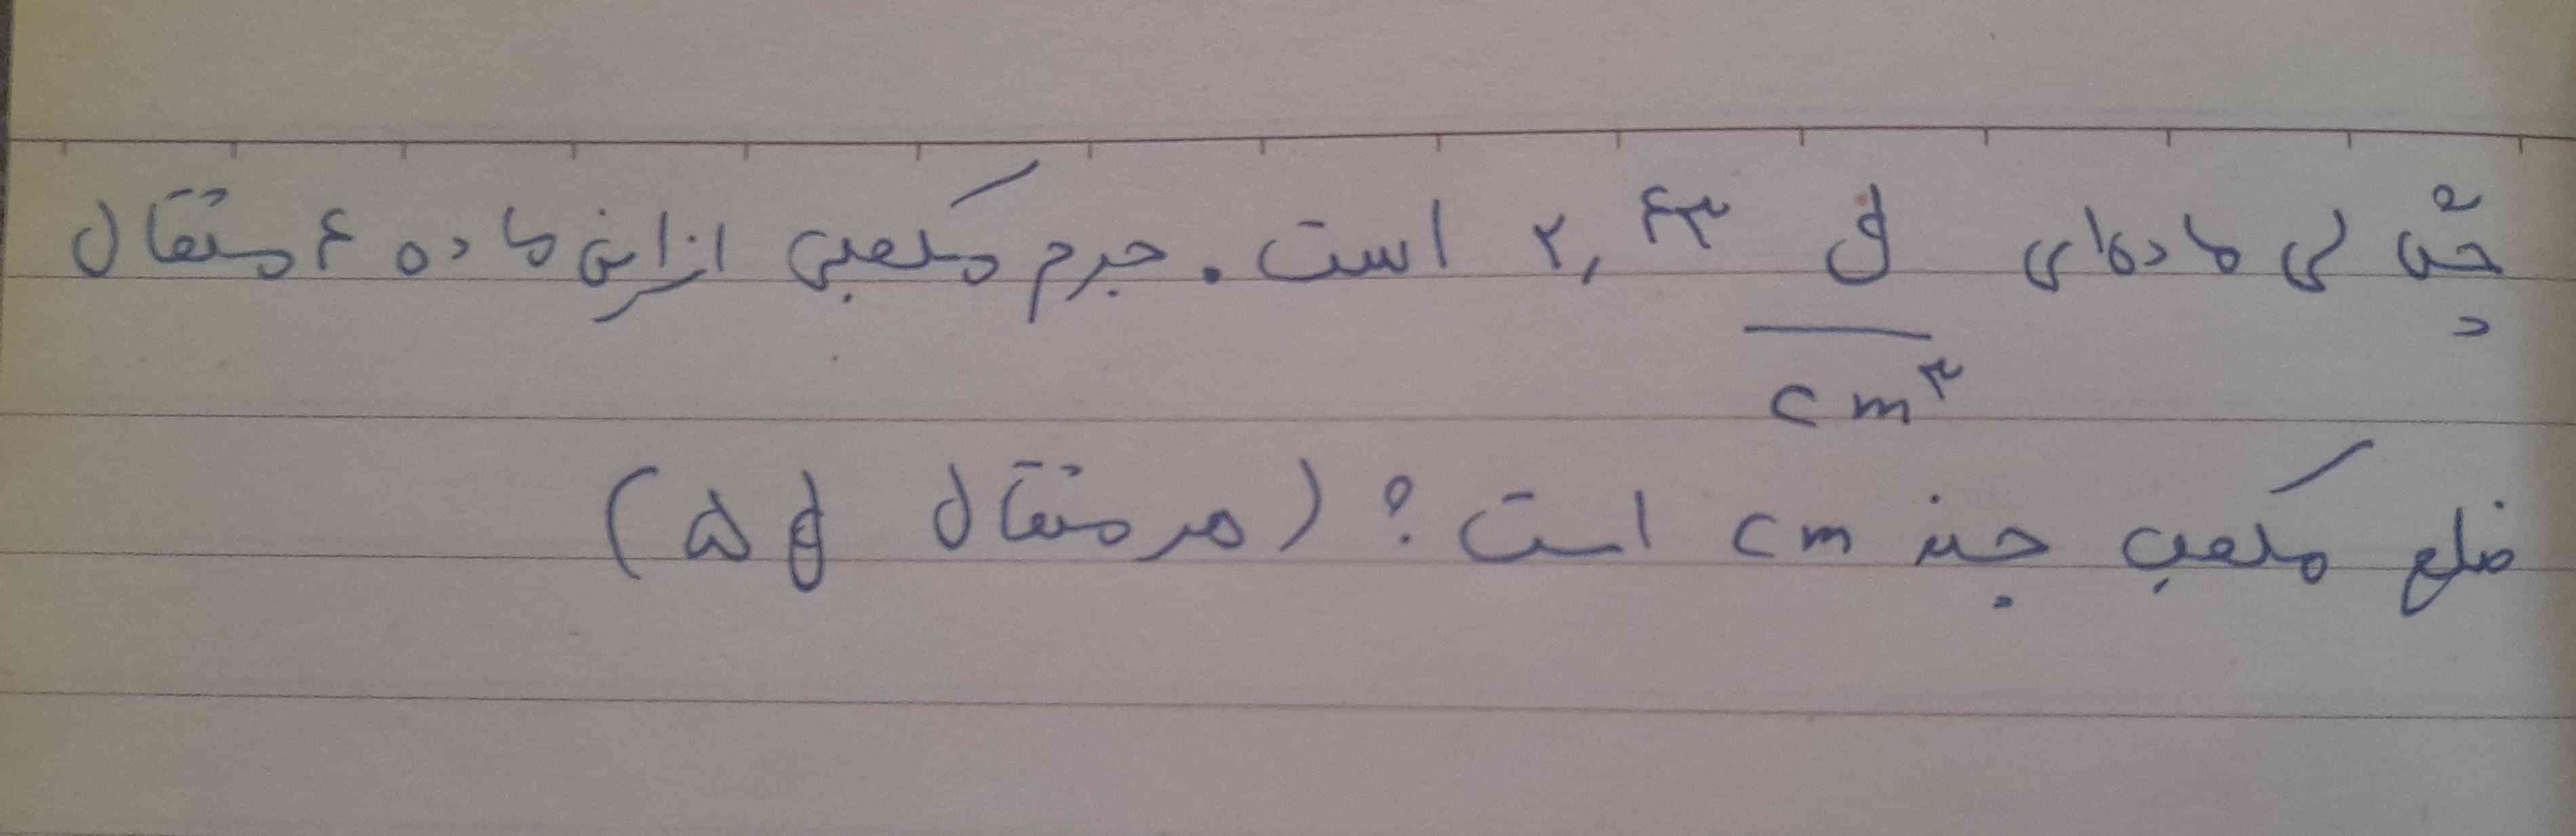 چگالی ماده‌ای g/cm³ ۲٫۴۳ است. جرم مکعبی از این ماده ۶ مثقال
ضلع مکعب چند cm است؟ (هر مثقال ۵ g)